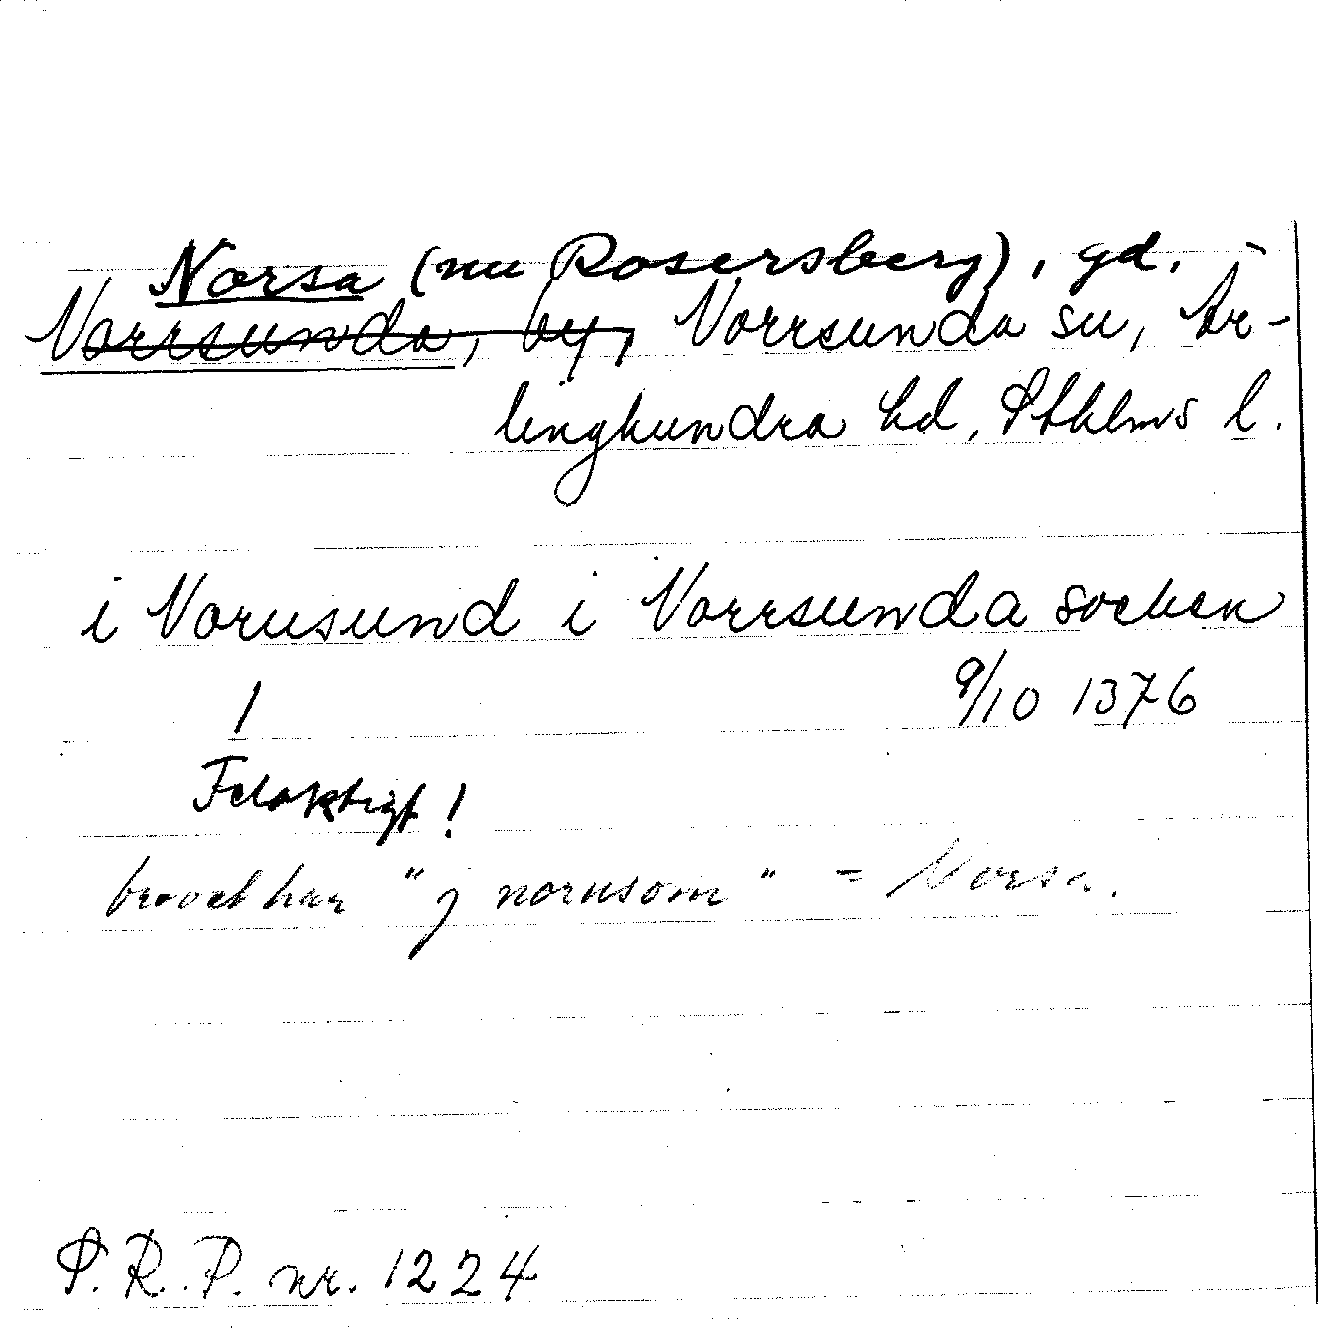 Norsa (nu Rosersberg), gd.
Norrsunda, by, Norrsunda sn, Är-
linghundra hd, Sthlms l.
i Norusund i Norrsunda socken
9/10 1376
Felaktigt!
brevet har "j nornsom" = Norsa.
S.R.P. nr. 1224